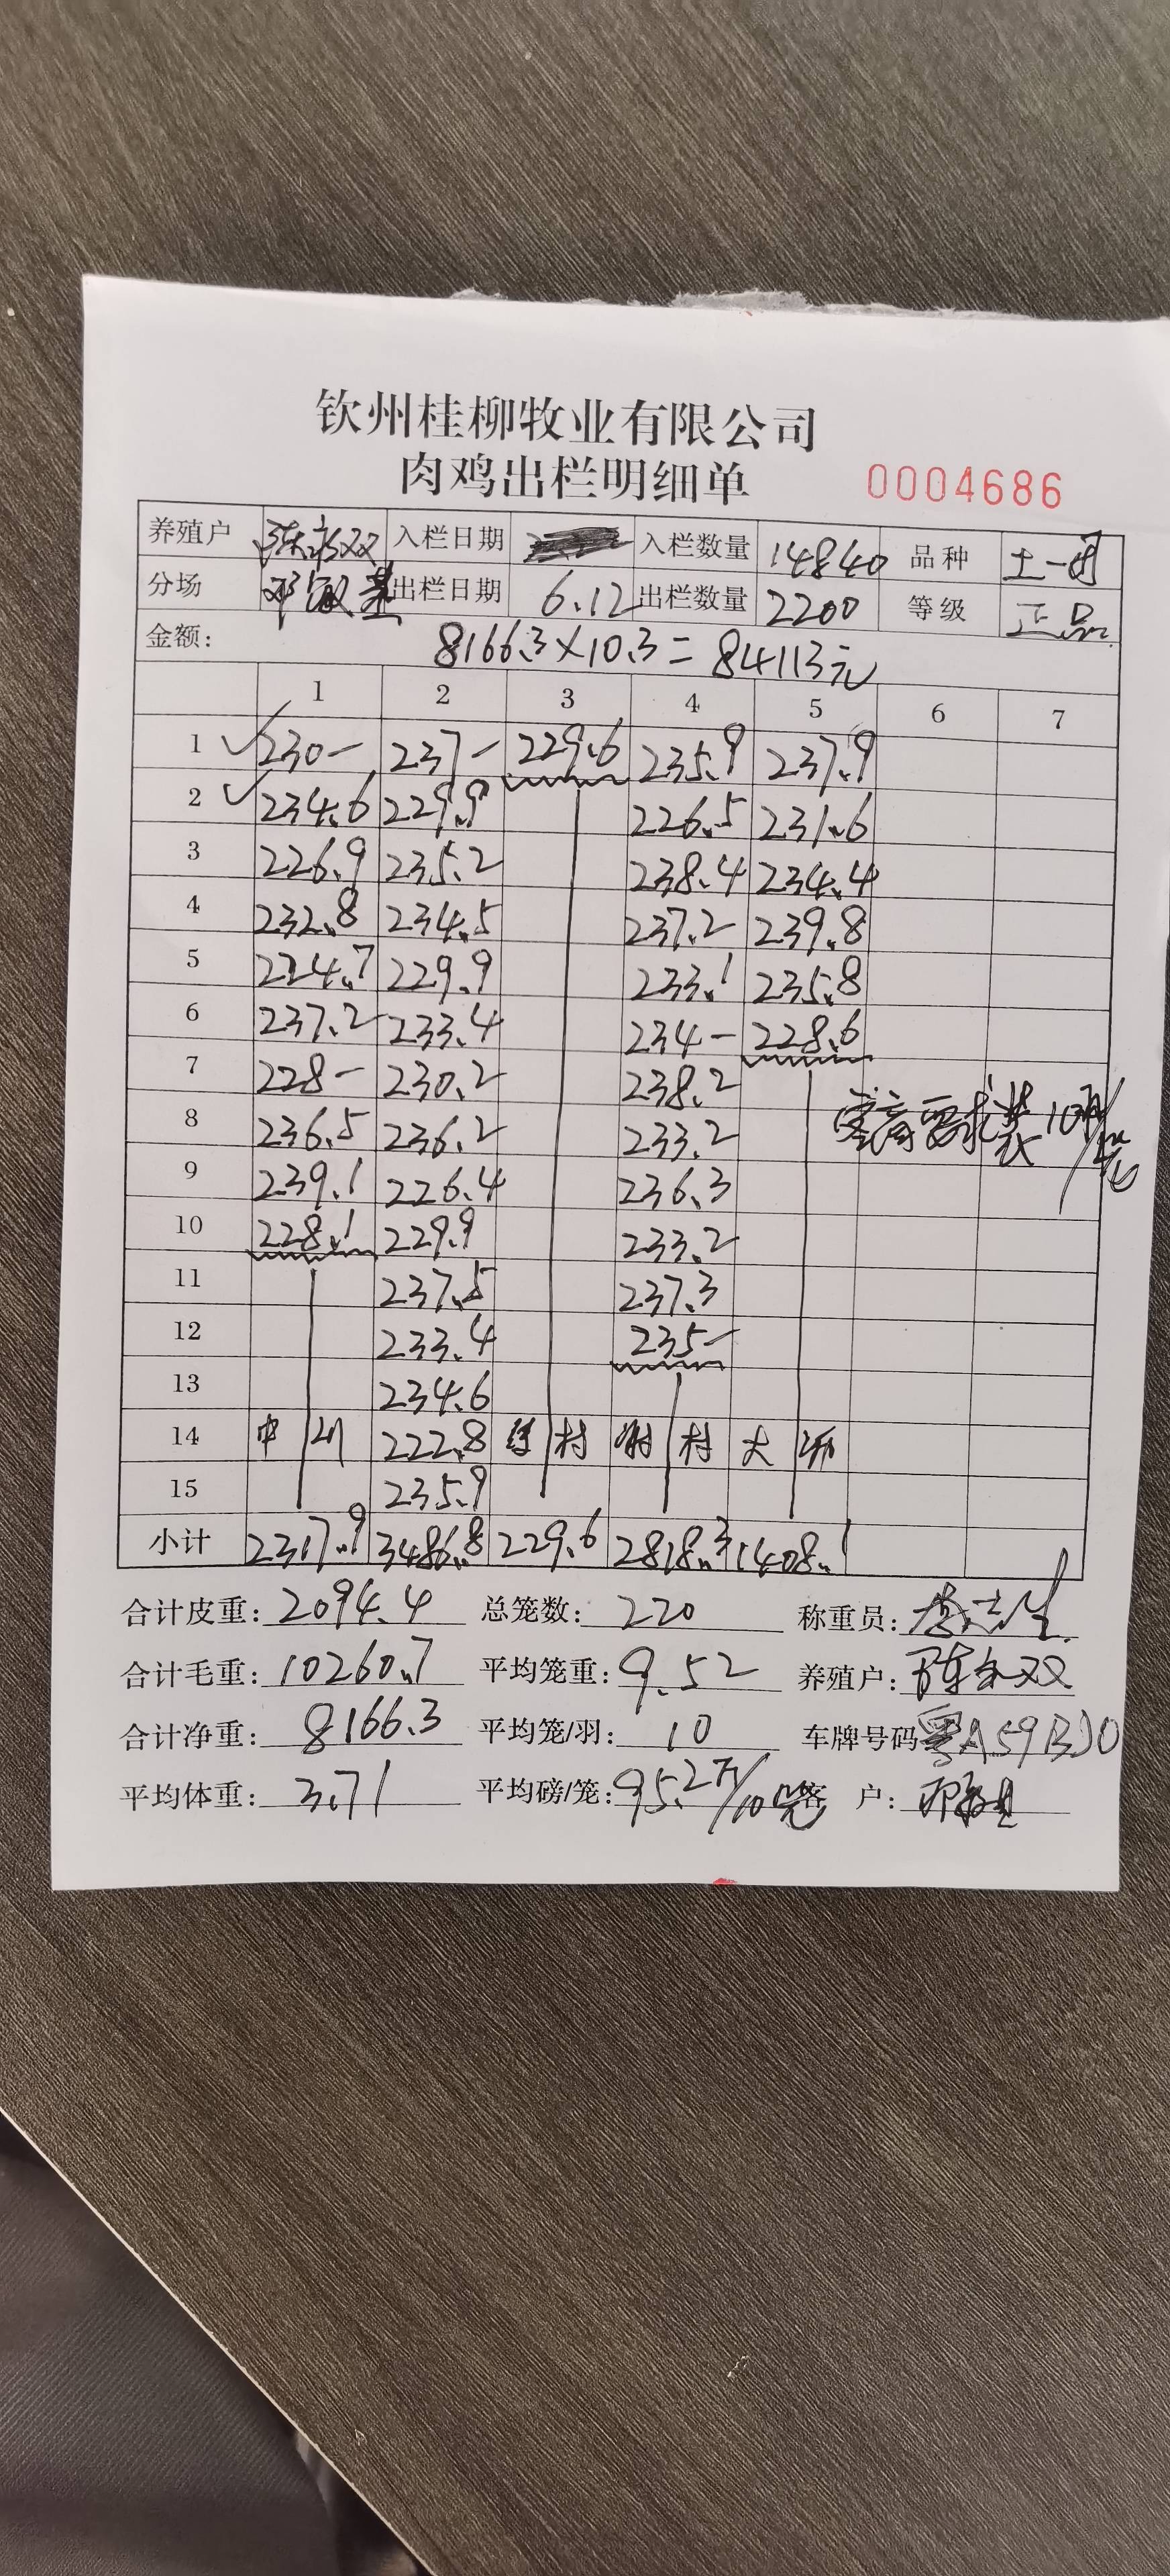 钦州桂柳牧业有限公司
肉鸡出栏明细单 0004686
养殖户 入栏日期 入栏数量 14840 品种 土一
分场 邓敏 出栏日期 6.12 出栏数量 2200 等级 正品
金额: 8166.3×10.3=84113元
1 2 3 4 5 6 7
1 ✓ 230- 237- 229.6 235.9 237.9
2 ✓ 234.6 229.9 226.5 231.6
3 226.9 235.2 238.4 234.4
4 232.8 234.5 237.2 239.8
5 224.7 229.9 233.1 235.8
6 237.2 233.4 234- 228.6
7 228- 230.2 238.2
8 236.5 236.2 233.2 要求装10
9 239.1 226.4 236.3
10 228.1 229.9 233.2
11 237.5 237.3
12 233.4 235-
13 234.6
14 222.8 村 村 大
15 235.9
小计 2317.9 3486.8 229.6 2818.3 1408.1
合计皮重: 2094.4 总笼数: 220 称重员:
合计毛重: 10260.7 平均笼重: 9.52 养殖户: 陈 双
合计净重: 8166.3 平均笼/羽: 10 车牌号码 粤A59BJ0
平均体重: 3.71 平均磅/笼: 95.2斤/10 客 户: